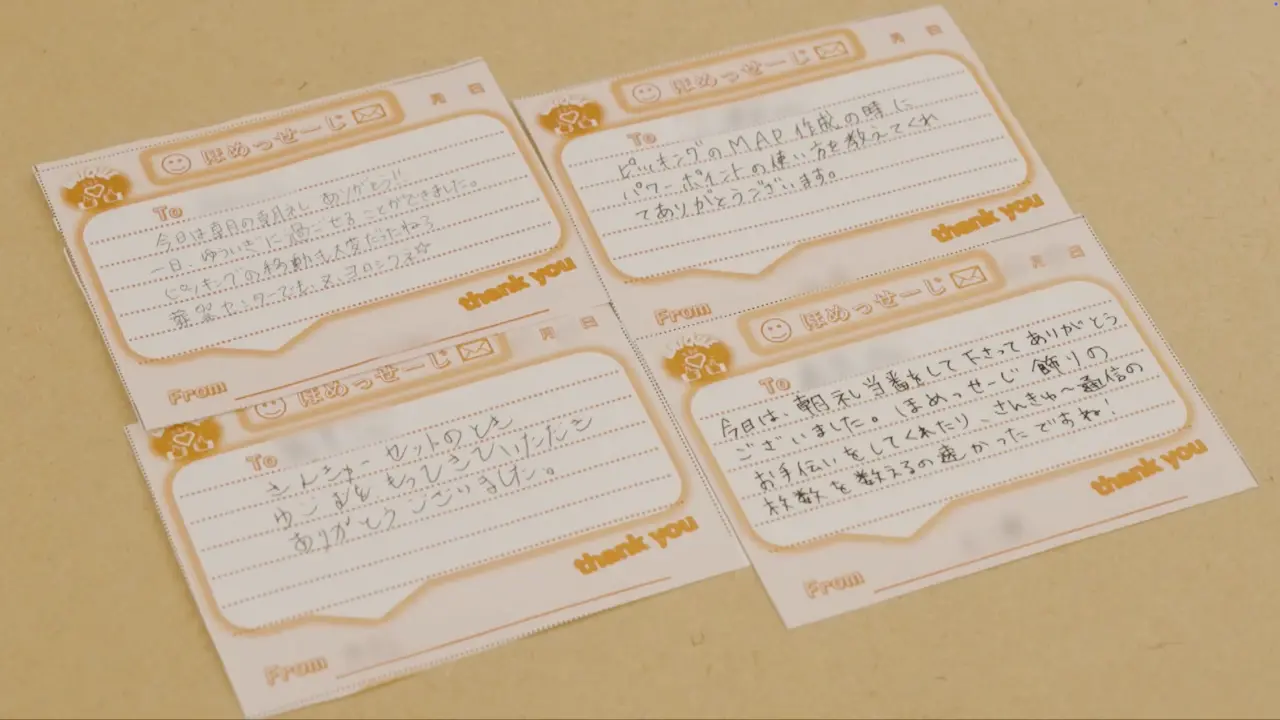 ほめっせーじ
月 日
To
今日は朝の朝礼、ありがとう!!
一日、ゆういぎに過ごせることができました。
ピッキングの移動も大変だったねぇ
でも、又、ヨロシクネ☆
thank you
From
ほめっせーじ
月 日
To
ピッキングのMAP作成の時に
パワーポイントの使い方を教えてくれ
てありがとうございます。
thank you
From
ほめっせーじ
月 日
To
さんきゅーセットのとき
ゆこむを もってきていただき
ありがとうございました。
thank you
From
ほめっせーじ
月 日
To
今日は、朝礼当番をして下さってありがとう
ございました。ほめっせーじ飾りの
お手伝いをしてくれたり、さんきゅ〜通信の
枚数を数えるの速かったですね!
thank you
From